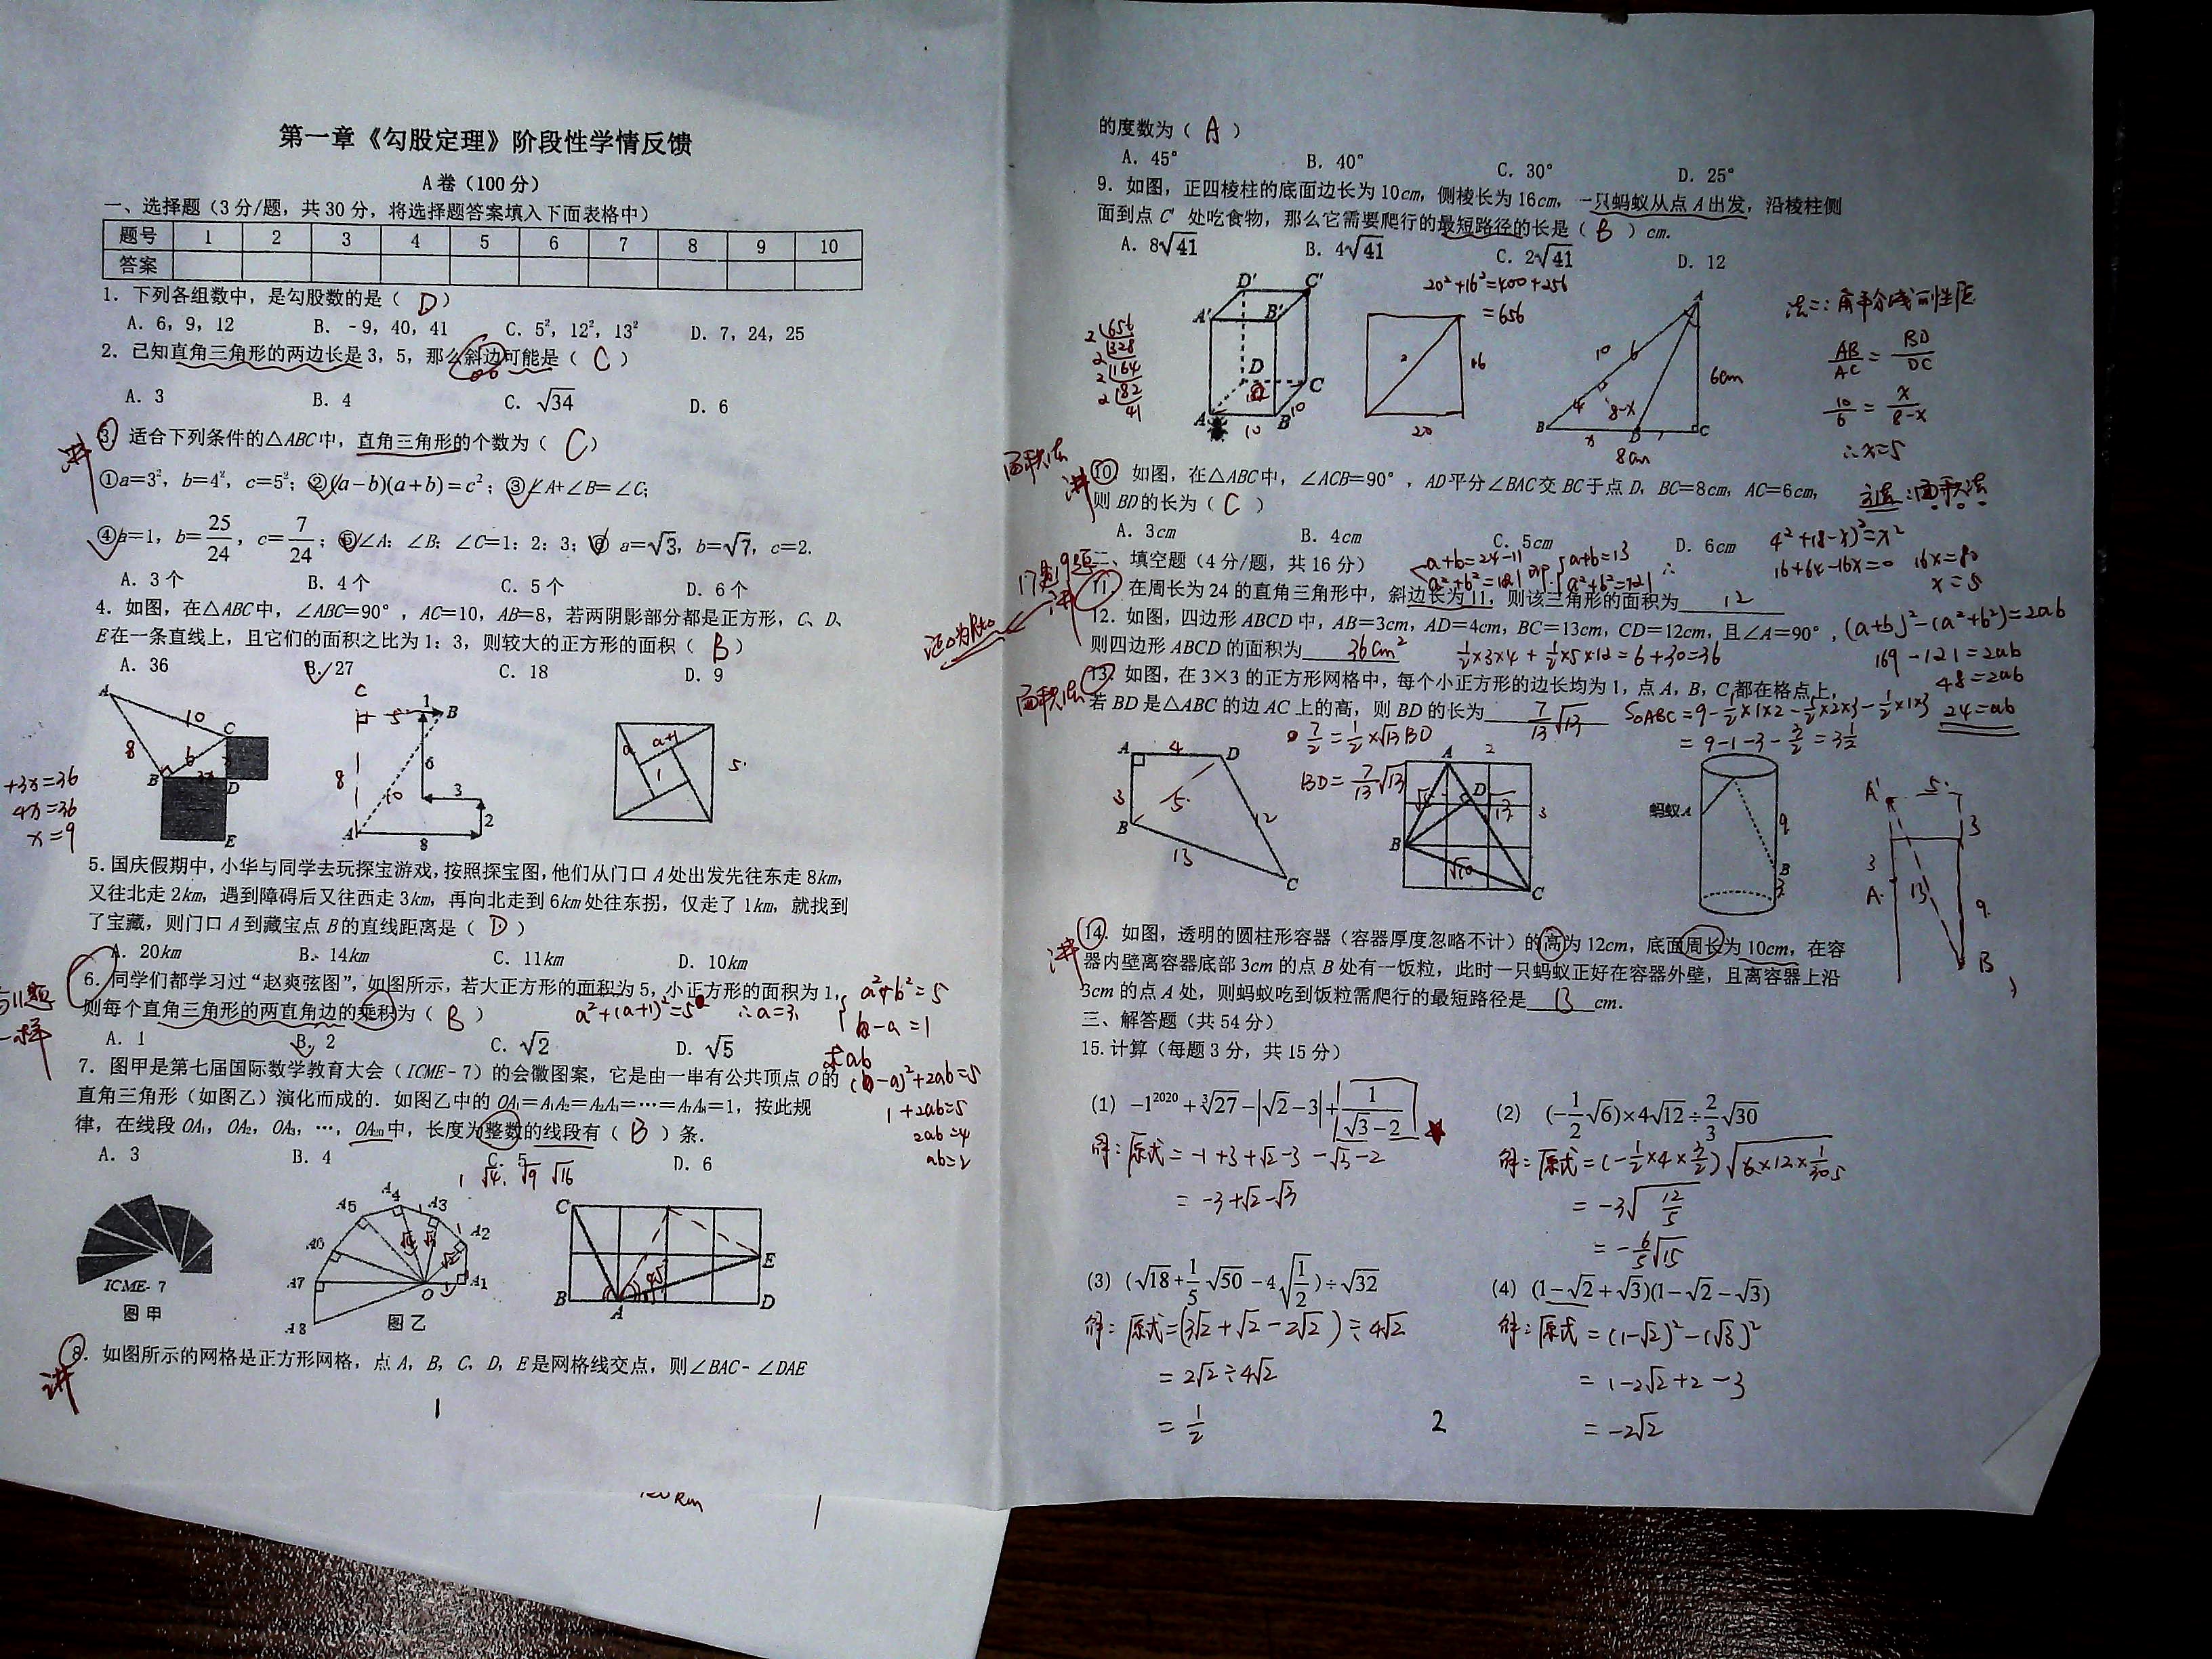 第一章《勾股定理》阶段性学情反馈
A卷（100分）
一、选择题（3分/题，共30分，将选择题答案填入下面表格中）
题号 1 2 3 4 5 6 7 8 9 10
答案
1．下列各组数中，是勾股数的是（ D ）
A．6，9，12 B．-9，40，41 C．5²，12²，13² D．7，24，25
2．已知直角三角形的两边长是3，5，那么斜边可能是（ C ）
A．3 B．4 C．√34 D．6
讲
3．适合下列条件的△ABC中，直角三角形的个数为（ C ）
①a=3²，b=4²，c=5²；②(a-b)(a+b)=c²；③∠A+∠B=∠C；
④a=1，b=25/24，c=7/24；⑤∠A：∠B：∠C=1：2：3；⑥ a=√3，b=√7，c=2．
A．3个 B．4个 C．5个 D．6个
4．如图，在△ABC中，∠ABC=90°，AC=10，AB=8，若两阴影部分都是正方形，C、D、
E在一条直线上，且它们的面积之比为1：3，则较大的正方形的面积（ B ）
A．36 B．27 C．18 D．9
A 10 C 8 6 B D E
+3x=36
4x=36
x=9
C 1 5 B 8 6 10 3 2 A 8
a a+1 1 5
5．国庆假期中，小华与同学去玩探宝游戏，按照探宝图，他们从门口A处出发先往东走8km，
又往北走2km，遇到障碍后又往西走3km，再向北走到6km处往东拐，仅走了1km，就找到
了宝藏，则门口A到藏宝点B的直线距离是（ D ）
A．20km B．14km C．11km D．10km
6．同学们都学习过“赵爽弦图”，如图所示，若大正方形的面积为5，小正方形的面积为1，
则每个直角三角形的两直角边的乘积为（ B ）
a²+(a+1)²=5 ∴a=3
A．1 B．2 C．√2 D．√5
与11题
一样
a²+b²=5
b-a=1
求ab
(b-a)²+2ab=5
1+2ab=5
2ab=4
ab=2
7．图甲是第七届国际数学教育大会（ICME-7）的会徽图案，它是由一串有公共顶点O的
直角三角形（如图乙）演化而成的．如图乙中的OA₁=A₁A₂=A₂A₃=…=A₇A₈=1，按此规
律，在线段OA₁，OA₂，OA₃，…，OA₂₀中，长度为整数的线段有（ B ）条．
A．3 B．4 C．5 D．6
1 √4 √9 √16
ICME-7
图甲
A5 A4 A3 A2 A6 A7 O A1 A8
图乙
C E B A D 45
讲
8．如图所示的网格是正方形网格，点A，B，C，D，E是网格线交点，则∠BAC-∠DAE
1
的度数为（ A ）
A．45° B．40° C．30° D．25°
9．如图，正四棱柱的底面边长为10cm，侧棱长为16cm，一只蚂蚁从点A出发，沿棱柱侧
面到点C′处吃食物，那么它需要爬行的最短路径的长是（ B ）cm．
A．8√41 B．4√41 C．2√41 D．12
2 656
2 328
2 164
2 82
41
D′ C′ A′ B′ D C A B 10 10
20²+16²=400+256
=656
16 20
A 10 6 6cm 4 8-x B x D C 8cm
法二：角平分线的性质
AB/AC=BD/DC
10/6=x/(8-x)
∴x=5
面积法
讲
10．如图，在△ABC中，∠ACB=90°，AD平分∠BAC交BC于点D，BC=8cm，AC=6cm，
则BD的长为（ C ）
A．3cm B．4cm C．5cm D．6cm
方法：面积法
4²+(8-x)²=x²
16+64-16x=0 16x=80
x=5
二、填空题（4分/题，共16分）
a+b=24-11
a²+b²=121 即 a+b=13
a²+b²=121
讲
11．在周长为24的直角三角形中，斜边长为11，则该三角形的面积为 12
12．如图，四边形ABCD中，AB=3cm，AD=4cm，BC=13cm，CD=12cm，且∠A=90°，
则四边形ABCD的面积为 36cm²
½×3×4+½×5×12=6+30=36
(a+b)²-(a²+b²)=2ab
169-121=2ab
48=2ab
24=ab
面积法
13．如图，在3×3的正方形网格中，每个小正方形的边长均为1，点A，B，C都在格点上，
若BD是△ABC的边AC上的高，则BD的长为 7/13√13
S△ABC=9-½×1×2-½×2×3-½×1×3
=9-1-3-3/2=3½
7/2=½×√13BD
BD=7/13√13
A 4 D 3 5 12 B 13 C
A 2 D √13 3 B √10 C
蚂蚁A 9 B 3
A′ 5 3 3 A 13 9 B
讲
14．如图，透明的圆柱形容器（容器厚度忽略不计）的高为12cm，底面周长为10cm，在容
器内壁离容器底部3cm的点B处有一饭粒，此时一只蚂蚁正好在容器外壁，且离容器上沿
3cm的点A处，则蚂蚁吃到饭粒需爬行的最短路径是 13 cm．
三、解答题（共54分）
15.计算（每题3分，共15分）
(1) -1²⁰²⁰+∛27-|√2-3|+1/(√3-2)
解：原式=-1+3+√2-3-√3-2
=-3+√2-√3
(2) (-½√6)×4√12÷⅔√30
解：原式=(-½×4×3/2)√(6×12×1/30)
=-3√(12/5)
=-6/5√15
(3) (√18+1/5√50-4√(1/2))÷√32
解：原式=(3√2+√2-2√2)÷4√2
=2√2÷4√2
=1/2
(4) (1-√2+√3)(1-√2-√3)
解：原式=(1-√2)²-(√3)²
=1-2√2+2-3
=-2√2
2